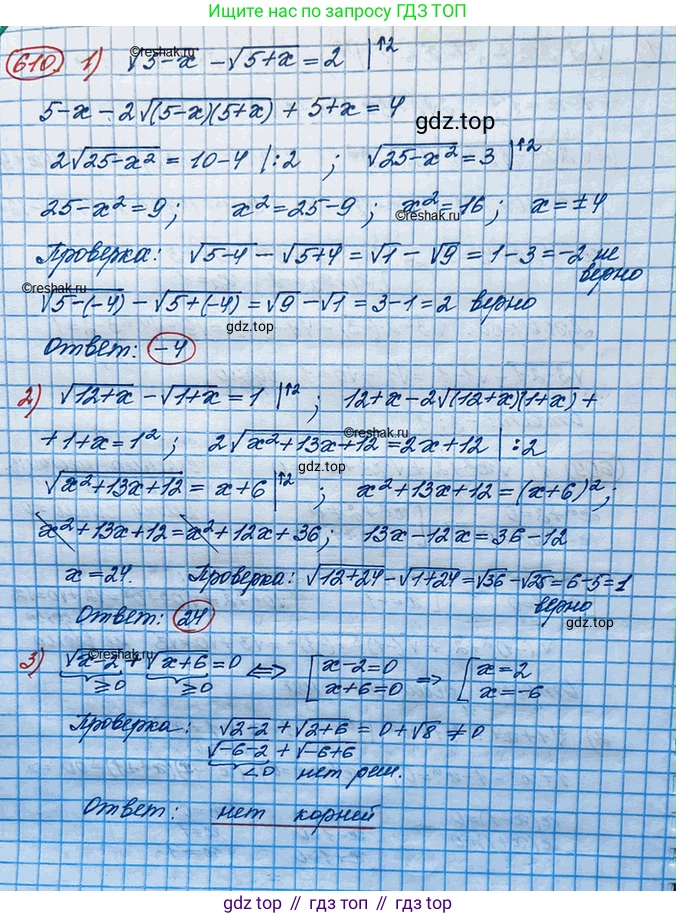 Ищите нас по запросу ГДЗ ТОП
610. 1) √5-x - √5+x = 2 |↑2
©reshak.ru
5-x-2√(5-x)(5+x) + 5+x = 4
gdz.top
2√25-x² = 10-4 |:2 ; √25-x² = 3 |↑2
25-x²=9; x²=25-9; x²=16; x=±4
©reshak.ru
Проверка: √5-4 - √5+4 = √1 - √9 = 1-3=-2 не верно
©reshak.ru
√5-(-4) - √5+(-4) = √9 - √1 = 3-1=2 верно
gdz.top
Ответ: -4
2) √12+x - √1+x = 1 |↑2 ; 12+x-2√(12+x)(1+x) +
©reshak.ru
+1+x=1² ; 2√x²+13x+12 = 2x+12 |:2
gdz.top
√x²+13x+12 = x+6 |↑2 ; x²+13x+12=(x+6)²;
x²+13x+12=x²+12x+36; 13x-12x=36-12
x=24. Проверка: √12+24 - √1+24 = √36 - √25 = 6-5=1
верно
Ответ: 24
gdz.top
©reshak.ru
3) √x-2 + √x+6 = 0 ⟺ [x-2=0 ⇒ [x=2
x+6=0 x=-6
≥0 ≥0
Проверка: √2-2 + √2+6 = 0+√8 ≠ 0
√-6-2 + √-6+6
<0 нет реш.
gdz.top
Ответ: нет корней
gdz.top // гдз топ // gdz top